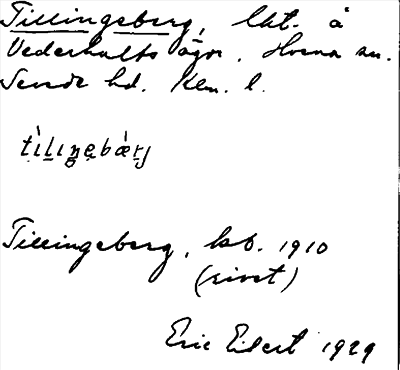 Tillingeberg, lht. å
Vederhults ägor. Horna sn.
Sevede hd. Klm. l.
tìlıŋebær̀j
Tillingeberg, kb. 1910
(rivet)
Eric Eidert 1929